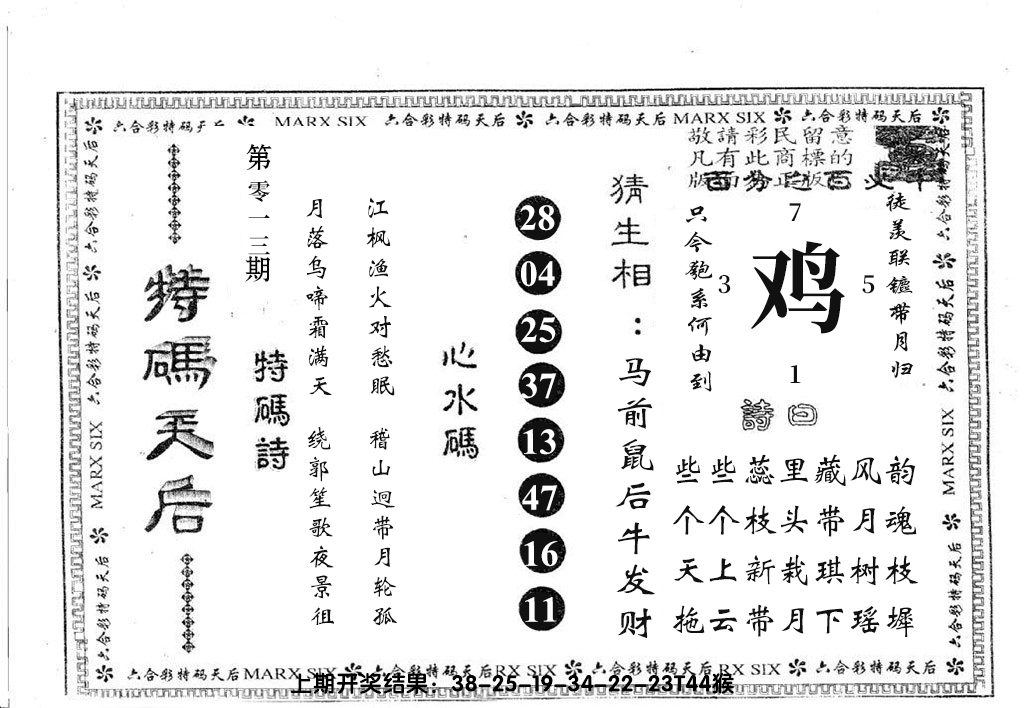 六合彩特码天后 MARX SIX 六合彩特码天后 六合彩特码天后 MARX SIX 六合彩特码天后
敬請彩民留意
凡有此商標的
版面为正版
第零一一三期
特碼天后
特碼詩
月落乌啼霜满天 绕郭笙歌夜景徂
江枫渔火对愁眠 稽山迥带月轮孤
心水碼
28
04
25
37
13
47
16
11
猜生相：马前鼠后牛发财
只今匏系何由到
7
3
鸡
5
1
徒羡联镳带月归
詩曰
些些蕊里藏风韵
个个枝头带月魂
天上新栽琪树枝
拖云带月下瑶墀
六合彩特码天后
MARX SIX
六合彩特码天后
六合彩特码天后
MARX SIX
六合彩特码天后
六合彩特码天后MARX SIX 六合彩特码天后RX SIX 六合彩特码天后RX SIX 六合彩特码天后
上期开奖结果：38-25-19-34-22-23T44猴